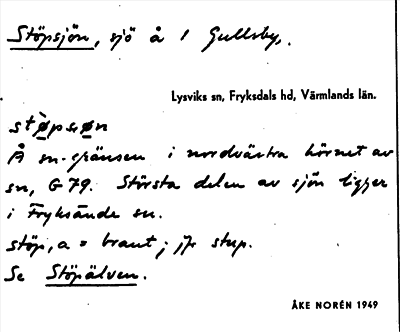 Stöpsjön, sjö å 1 Gullsby,.
Lysviks sn, Fryksdals hd, Värmlands län.
støpsøn
Å sn-gränsen i nordvästra hörnet av
sn, G 79. Största delen av sjön ligger
i Fryksände sn.
stöp, a = brant; jfr stup.
Se Stöpälven.
ÅKE NORÉN 1949